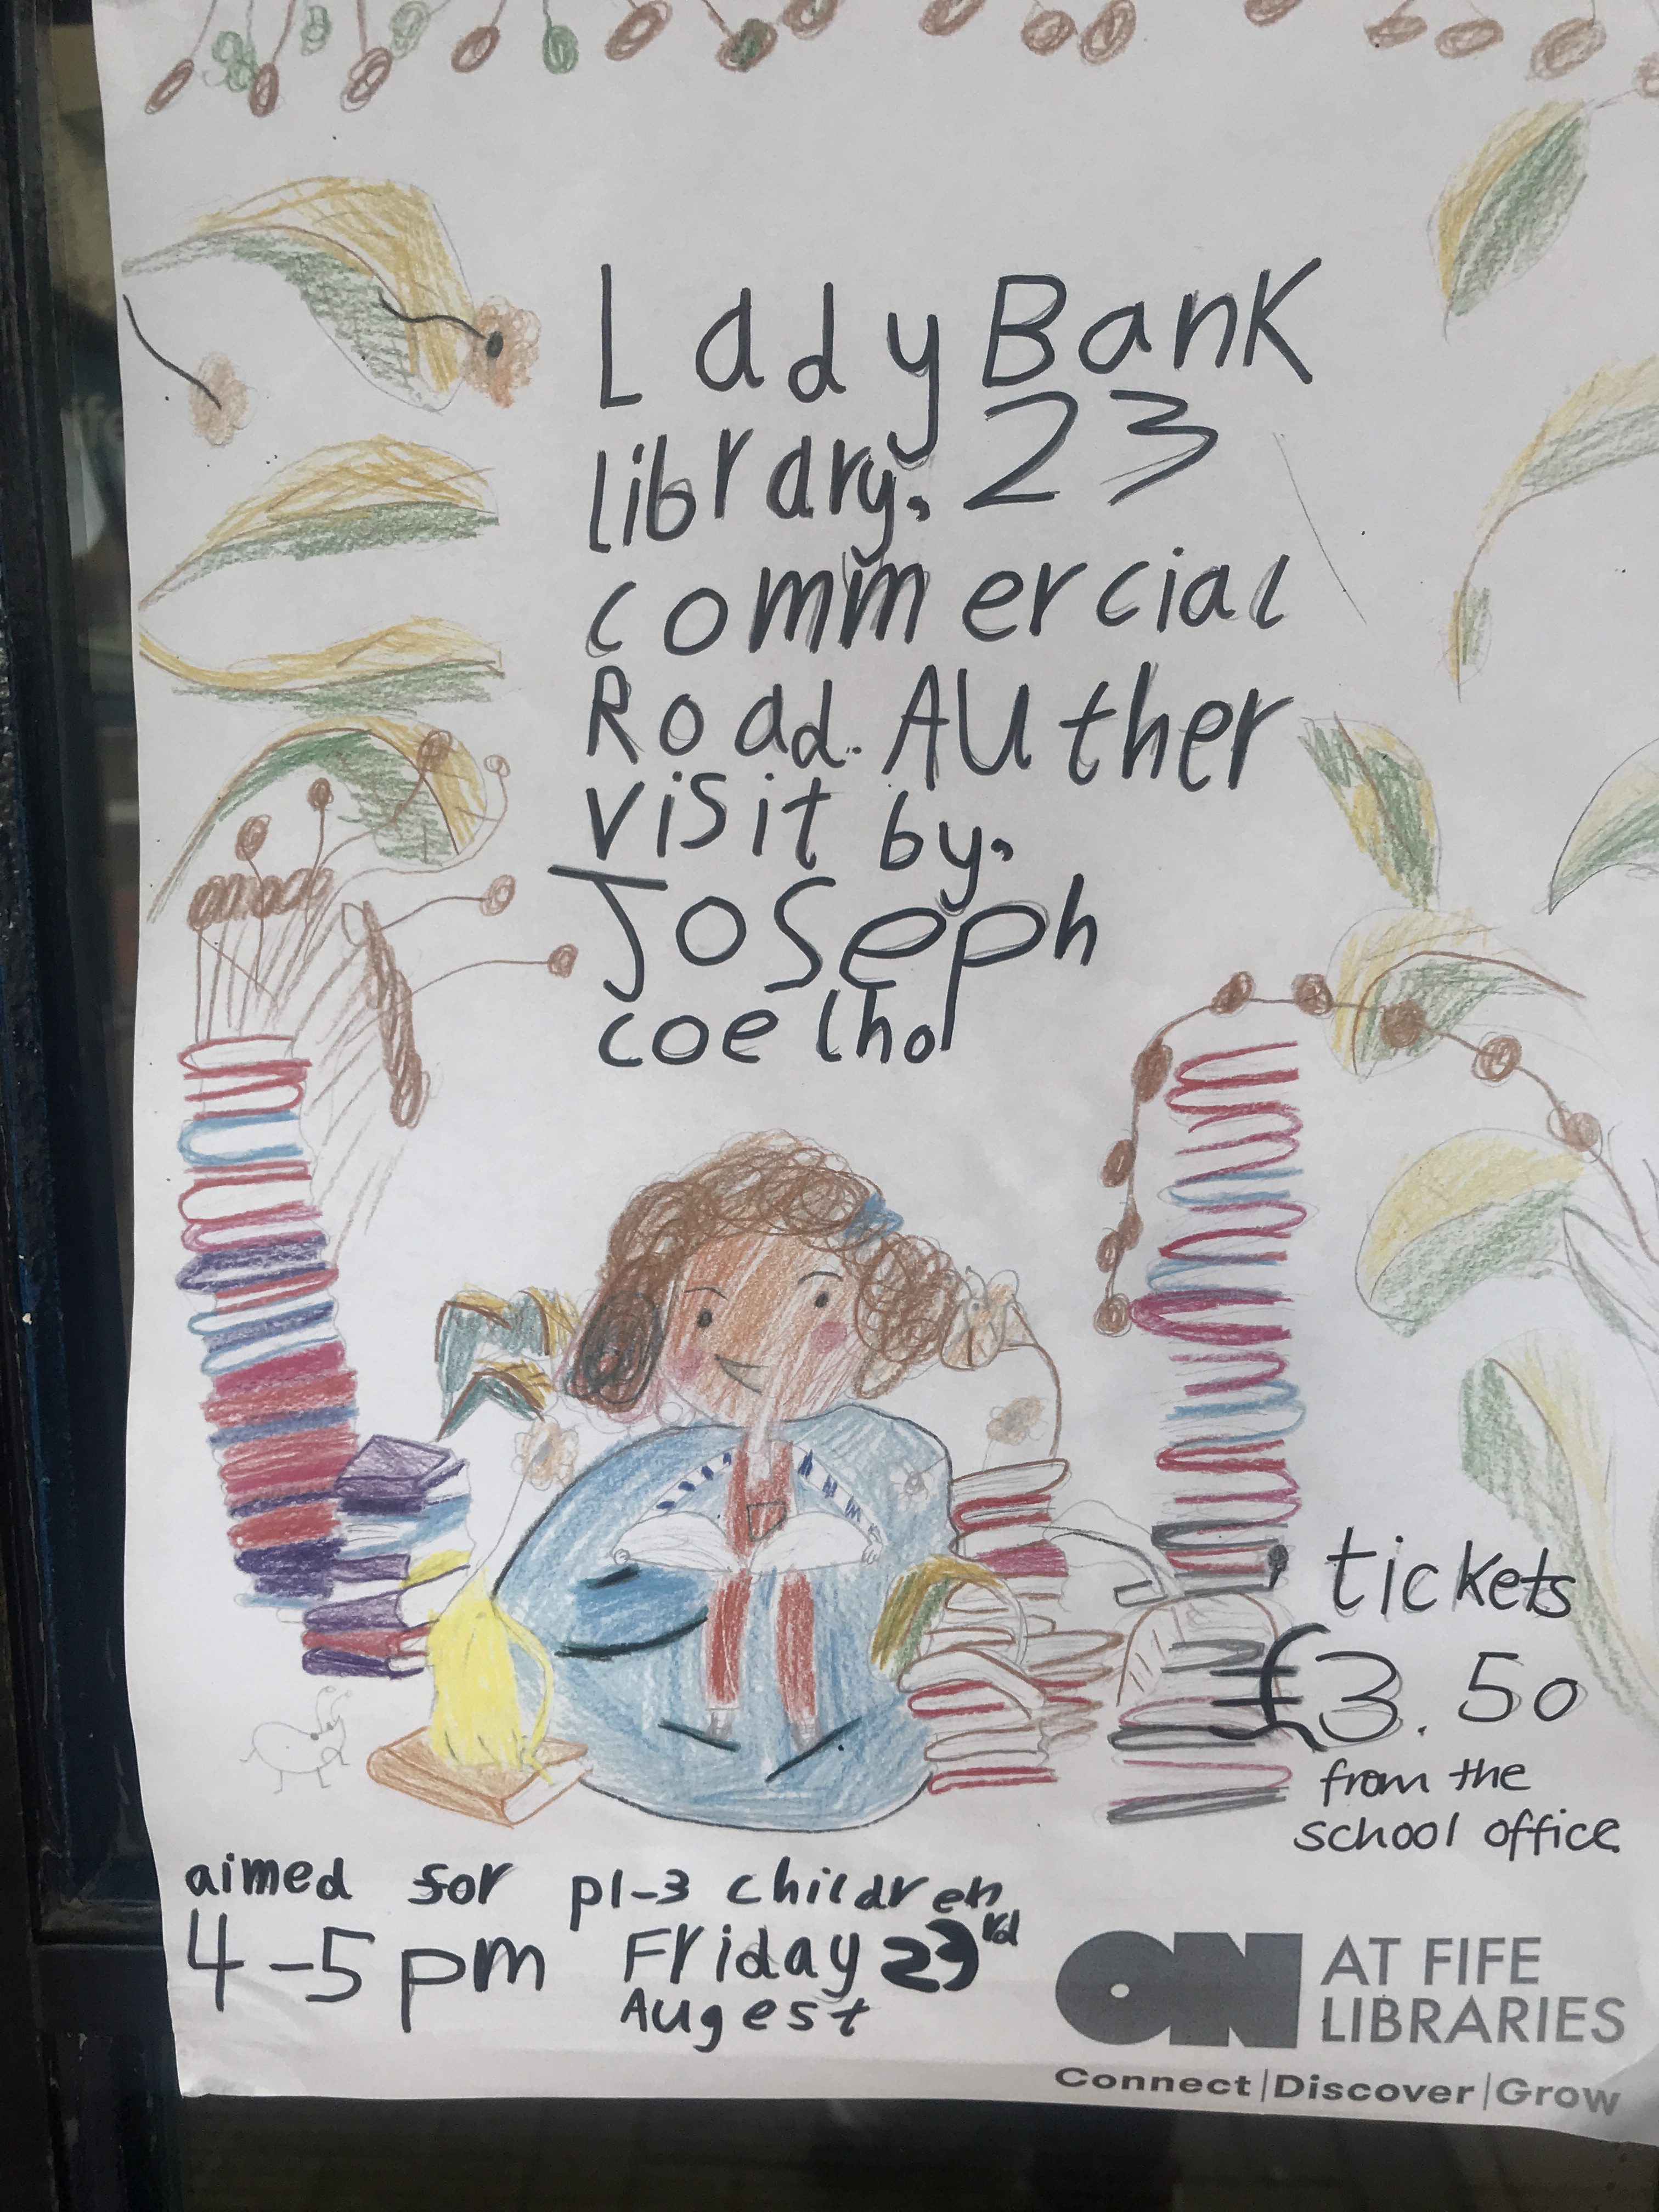 Lady Bank
library. 23
commercial
Road. AUther
visit by.
Joseph
coelho
, tickets
£3.50
from the
school office
aimed for p1-3 children
4-5pm Friday 23rd
Augest
ON AT FIFE
LIBRARIES
Connect|Discover|Grow